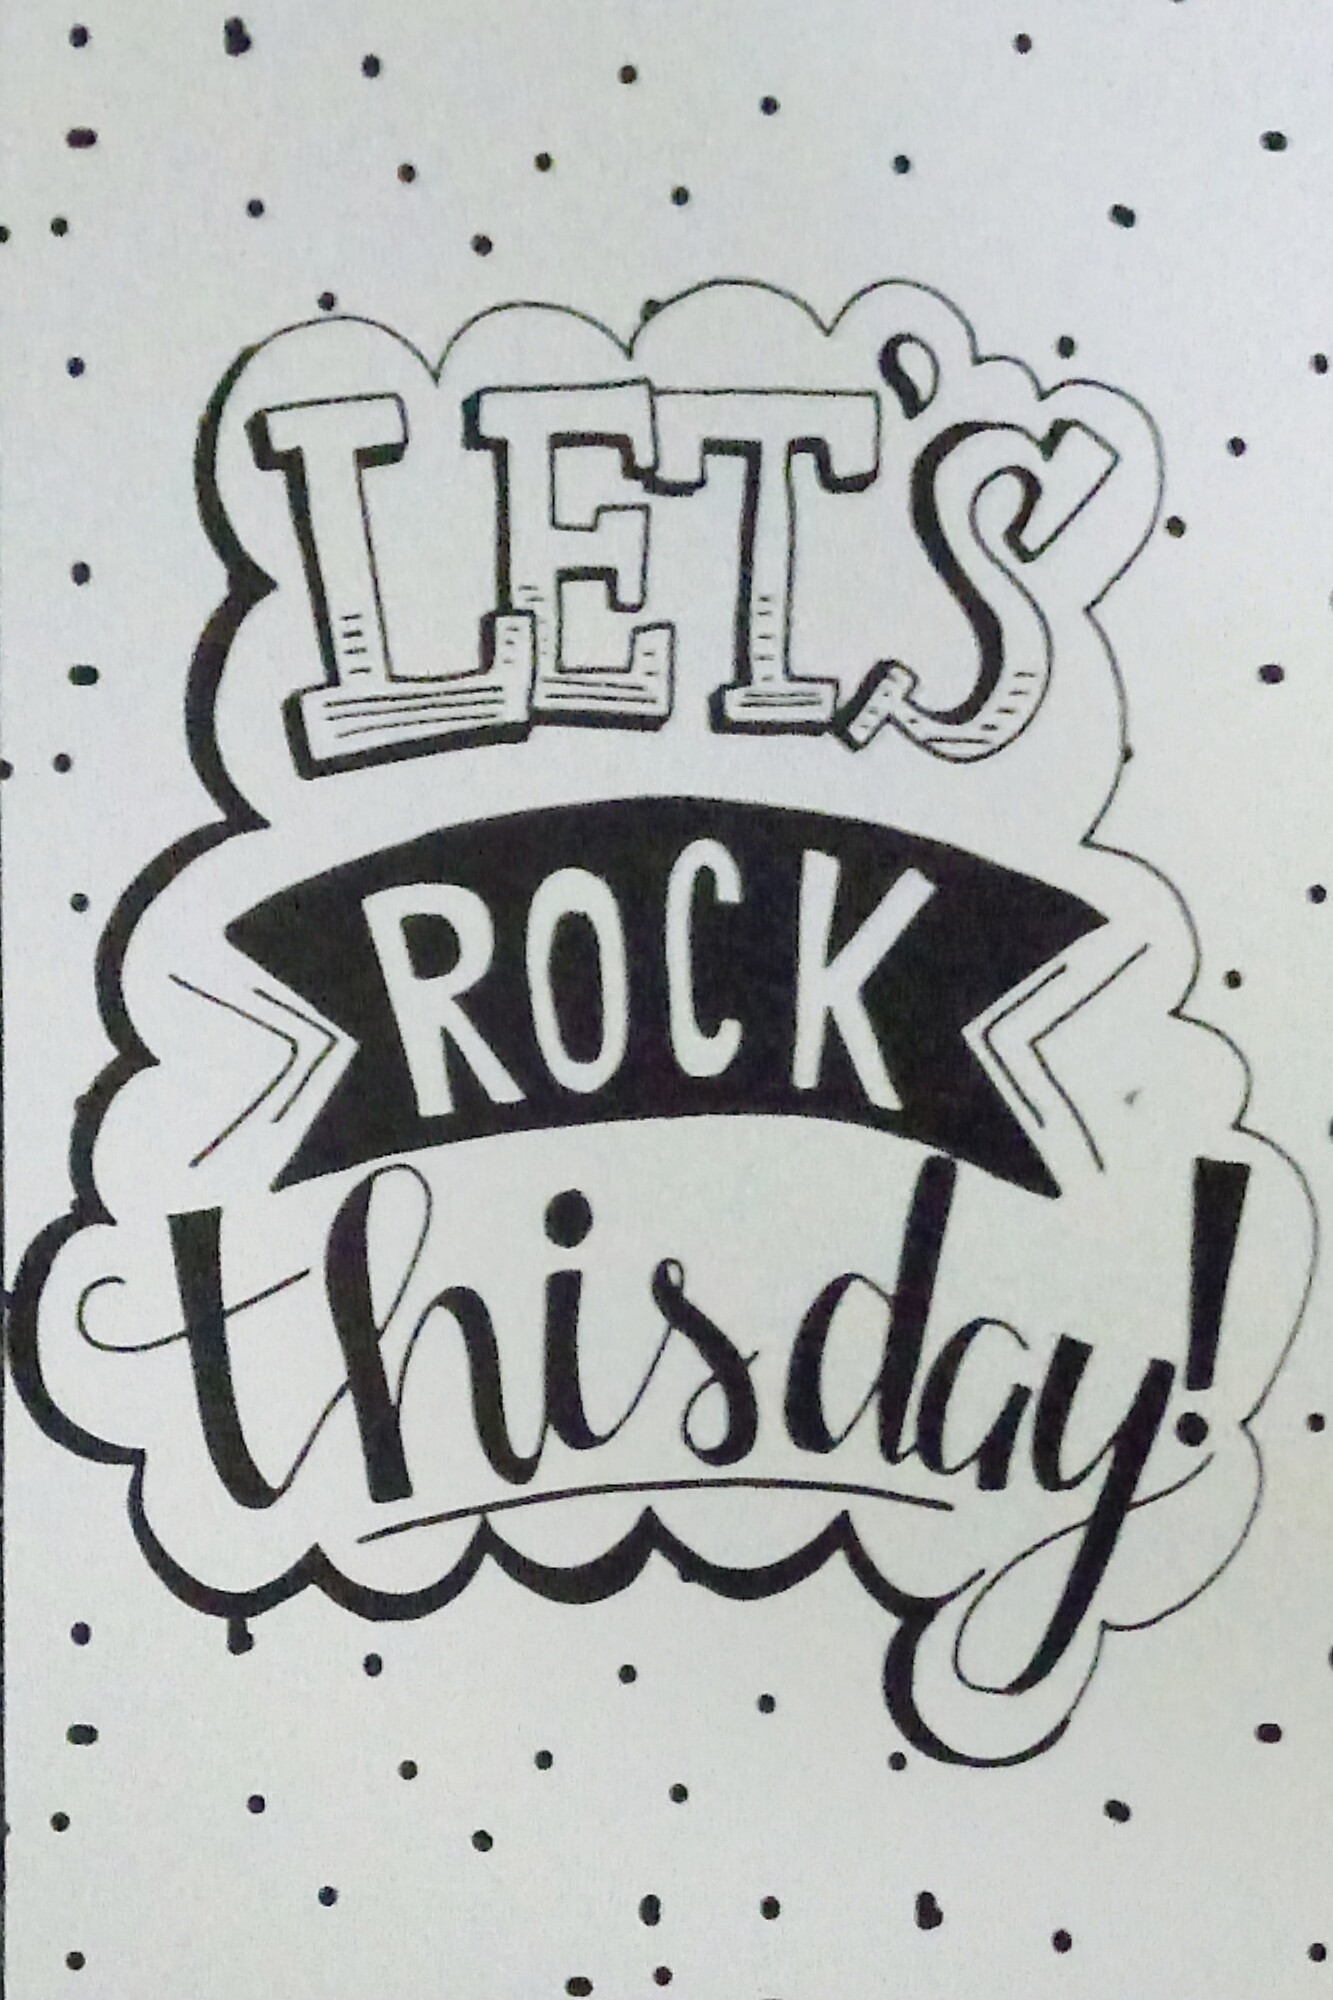 LET'S
ROCK
this day!